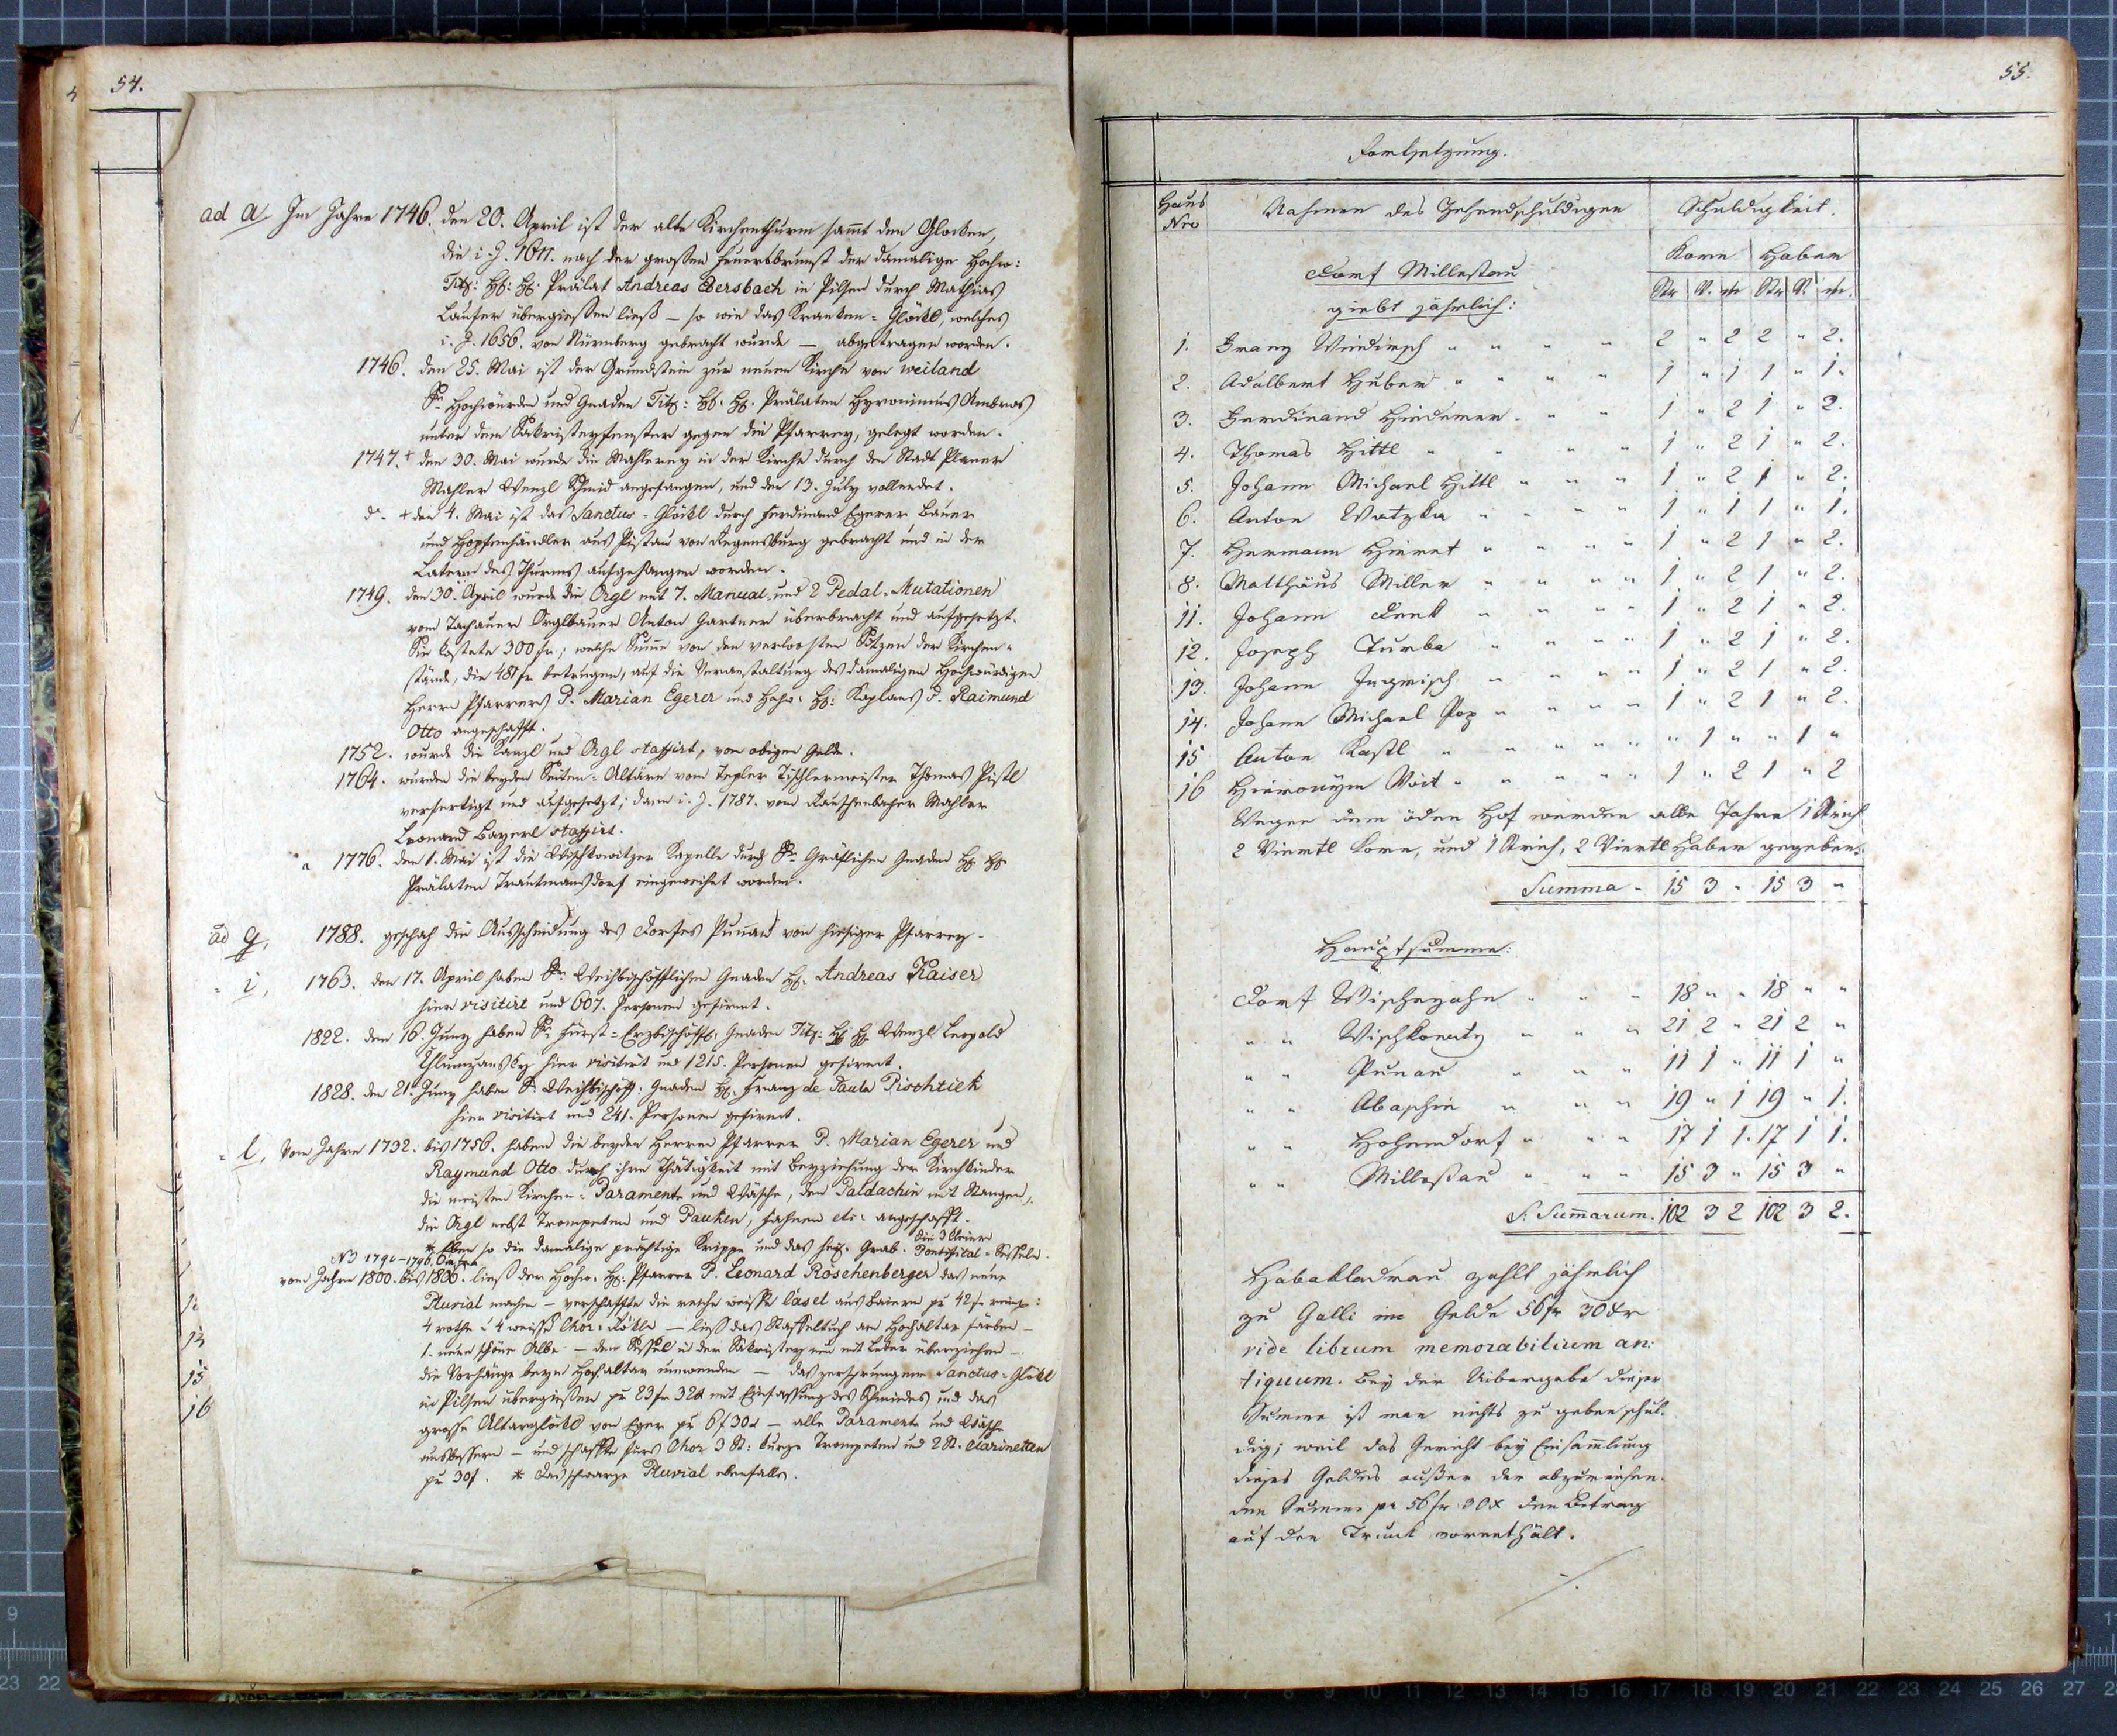 54.
ad a. Im Jahre 1746. den 20. April ist der alte Kirchenthurm samt den Glocken,
die i. J. 1677. nach der großen Feuersbrunst der damalige Hochw:
Titl: H: H: Prälat Andreas Ebersbach in Pilsen durch Mathias
Laufer übergießen ließ – so wie das Kranken-Glöckl, welches
i. J. 1656. von Nürnberg gebracht wurde – abgetragen worden.
1746. den 25. Mai ist der Grundstein zur neuen Kirche von weiland
Sr Hochwürden und Gnaden Titl: H: H: Prälaten Hyronimus Ambros
unter dem Sakristeyfenster gegen die Pfarrey, gelegt worden.
1747. + den 30. Mai wurde die Mahlerey in der Kirche durch den Stadt Planer
Mahler Wenzl Schmid angefangen, und den 13. July vollendet.
do. + den 4. Mai ist das Sanctus-Glöckl durch Ferdinand Egerer Bauer
und Hopfenhändler aus Pistau von Regensburg gebracht und in der
Latern des Thurms aufgehangen worden.
1749. den 30. April wurde die Orgl mit 7. Manual und 2 Pedal-Mutationen
vom Tachauer Orglbauer Anton Gartner überbracht und aufgesetzt.
Sie kostete 300 fr; welche Summe von den verloosten Sitzen der Kirchen-
stände, die 487 fr betrugen, auf die Veranstaltung des damaligen Hochwürdigen
Herrn Pfarrers P. Marian Egerer und Hochw: H: Kaplans P. Raimund
Otto angeschafft.
1752. wurde die Kanzl und Orgl staffirt, von obigem Gelde.
1764. wurden die beyden Seiten-Altäre vom Tepler Tischlermeister Thomas Pistl
verfertigt und aufgesetzt; dann i. J. 1787. vom Rauschenbacher Mahler
Leonard Bayerl staffirt.
" 1776. den 1. Mai ist die Wischkowitzer Kapelle durch Sr Gräflichen Gnaden H: H:
Prälaten Trautmansdorf eingeweihet worden.
ad g, 1788. geschah die Ausscheidung des Dorfes Punau von hiesiger Pfarrey.
" i, 1763. den 17. April haben Sr Weihbischöflichen Gnaden H: Andreas Kaiser
hier visitirt und 607. Personen gefirmt.
1822. den 16. Juny haben Sr Fürst-Erzbischöfl: Gnaden Titl: H: H: Wenzl Leopold
Chlumzansky hier visitirt und 1215. Personen gefirmt.
1828. den 21. Juny haben Sr Weihbischöf: Gnaden H: Franz de Paula Pischtiek
hier visitirt und 241. Personen gefirmt.
" l, Vom Jahre 1732. bis 1756. haben die beyden Herren Pfarrer P. Marian Egerer und
Raymund Otto durch ihre Thätigkeit mit Beyziehung der Kirchkinder
die meisten Kirchen-Paramente und Wäsche, den Paldachin mit Stangen,
die Orgl nebst Trompeten und Pauken, Fahnen etc: angeschafft.
* Eben so die damalige prächtige Krippe und das heil. Grab. Pontifical-Sesseln.
vom Jahre 1800. bis 1830. ließ der Hochw. H: Pfarrer P. Leonard Röschenberger das neue
Pluvial machen – verschaffte die reiche weisse Casel aus Baiern pr 42 fr
4 rothe & 4 weisse Chor-Rökln – ließ das Staffeltuch am Hochaltar färben –
1. neue schöne Albe – den Sessel in der Sakristey neu mit Leder überziehen –
die Vorhänge beym Hochaltar umwenden – das zersprungene Sanctus-Glökl
in Pilsen übergießen pr 23 fr 32 x mit Einfassung des Schmiedes und das
grosse Altarglöckl von Eger pr 6 f 30 x – alle Paramente und Wäsche
ausbessern – und schaffte fürs Chor 3 St: kurze Trompeten und 2 St. Clarinetten
pr 30 f. * Das schwarze Pluvial ebenfalls.
15
16
55.
Fortsetzung.
Haus Nro Nahmen des Zehendschuldigen Schuldigkeit.
Korn Haber
Dorf Millestau Str V. m Str V. m.
giebt jährlich:
1. Franz Windirsch " " " " 2 " 2 2 " 2.
2. Adalbert Huber " " " " 1 " 1 1 " 1.
3. Ferdinand Hiederer " " " 1 " 2 1 " 2.
4. Thomas Hittl " " " " 1 " 2 1 " 2.
5. Johann Michael Hittl " " " 1 " 2 1 " 2.
6. Anton Watzka " " " " 1 " 1 1 " 1.
7. Hermann Hieret " " " " 1 " 2 1 " 2.
8. Matthäus Miller " " " " 1 " 2 1 " 2.
11. Johann Denk " " " " 1 " 2 1 " 2.
12. Joseph Turba " " " " 1 " 2 1 " 2.
13. Johann " " " " 1 " 2 1 " 2.
14. Johann Michael Pop " " " " 1 " 2 1 " 2.
15 Anton Kastl " " " " " " 1 " " 1 "
16 Hieronym Voit " " " " " 1 " 2 1 " 2
Wegen dem öden Hof werden alle Jahre 1 Strich
2 Viertl Korn, und 1 Strich, 2 Viertl Haber gegeben.
Summa " 15 3 " 15 3 "
Hauptsumme:
Dorf Wischezahn " " " 18 " " 18 " "
" " Wischkowitz " " " 21 2 " 21 2 "
" " Punau " " " 11 1 " 11 1 "
" " Abaschin " " " 19 " 1 19 " 1.
" " Hohendorf " " " 17 1 1. 17 1 1.
" " Millestau " " " 15 3 " 15 3 "
S. Summarum. 102 3 2 102 3 2.
Habakladrau zahlt jährlich
zu Galli im Gelde 56 fr 30 xr
vide librum memorabilium an:
tiquum. Bey der Uibergabe dieser
Summe ist man nichts zu geben schul-
dig; weil das Gericht bey Einsammlung
dieses Geldes außer der abzureichen-
den Summe pr 56 fr 30 x den Betrag
auf den Trunk vorenthält.